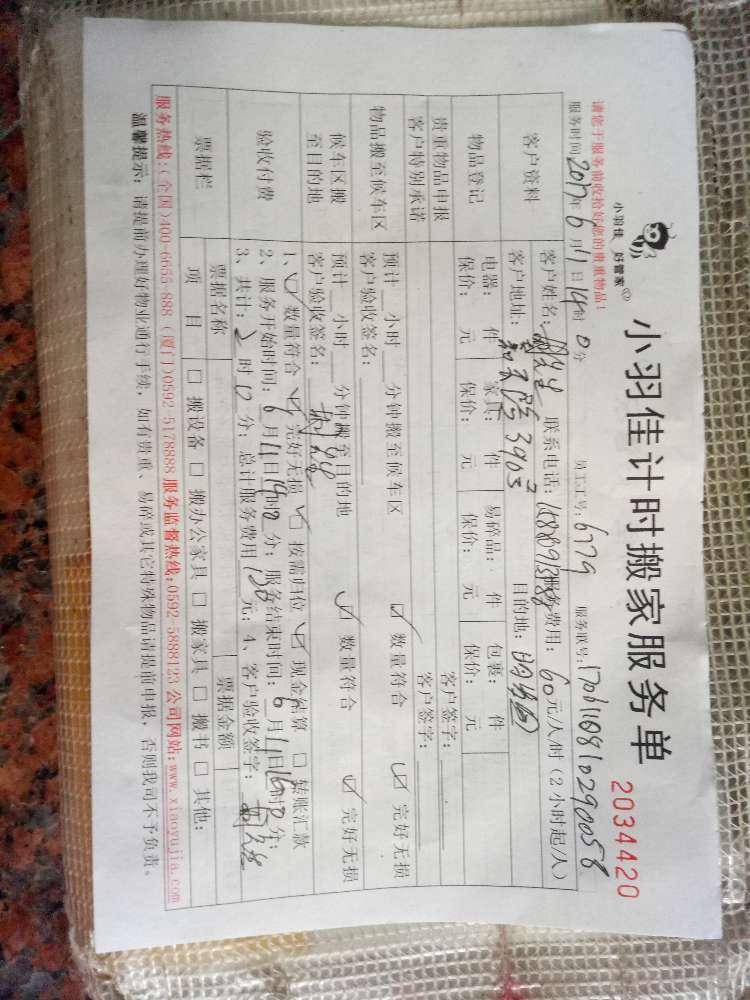 小羽佳 好管家
小羽佳计时搬家服务单
2034420
请您于服务前收拾好您的贵重物品!
服务时间 2017年6月11日14时0分 员工工号: 6779 服务账号:
客户资料
客户姓名: 联系电话: 服务费用: 60元/人/时(2小时起/人)
客户地址: 目的地:
物品登记
电器: 件 家具: 件 易碎品: 件 包裹: 件
保价: 元 保价: 元 保价: 元 保价: 元
贵重物品申报 客户签字:
客户特别承诺 客户签字:
物品搬至候车区
预计__小时__分钟搬至候车区 ☑ 数量符合 ☑ 完好无损
客户验收签名:
候车区搬至目的地
预计__小时__分钟搬至目的地 ☑ 数量符合 ☑ 完好无损
客户验收签名:
验收付费
1、☑ 数量符合 ☑ 完好无损 ☑ 按需归位 ☑ 现金结算 □ 转账汇款
2、服务开始时间: 6月11日14时0分; 服务结束时间: 6月11日16时0分;
3、共计: 2时0分; 总计服务费用 元; 4、客户验收签字:
票据栏
票据名称 票据金额
项目 □ 搬设备 □ 搬办公家具 □ 搬家具 □ 搬书 □ 其他:
服务热线:(全国)400-6655-888 (厦门)0592-5178888 服务监督热线:0592-5888123 公司网站:www.xiaoyujia.com
温馨提示: 请提前办理好物业通行手续, 如有贵重、易碎或其它特殊物品请提前申报, 否则我司不予负责。